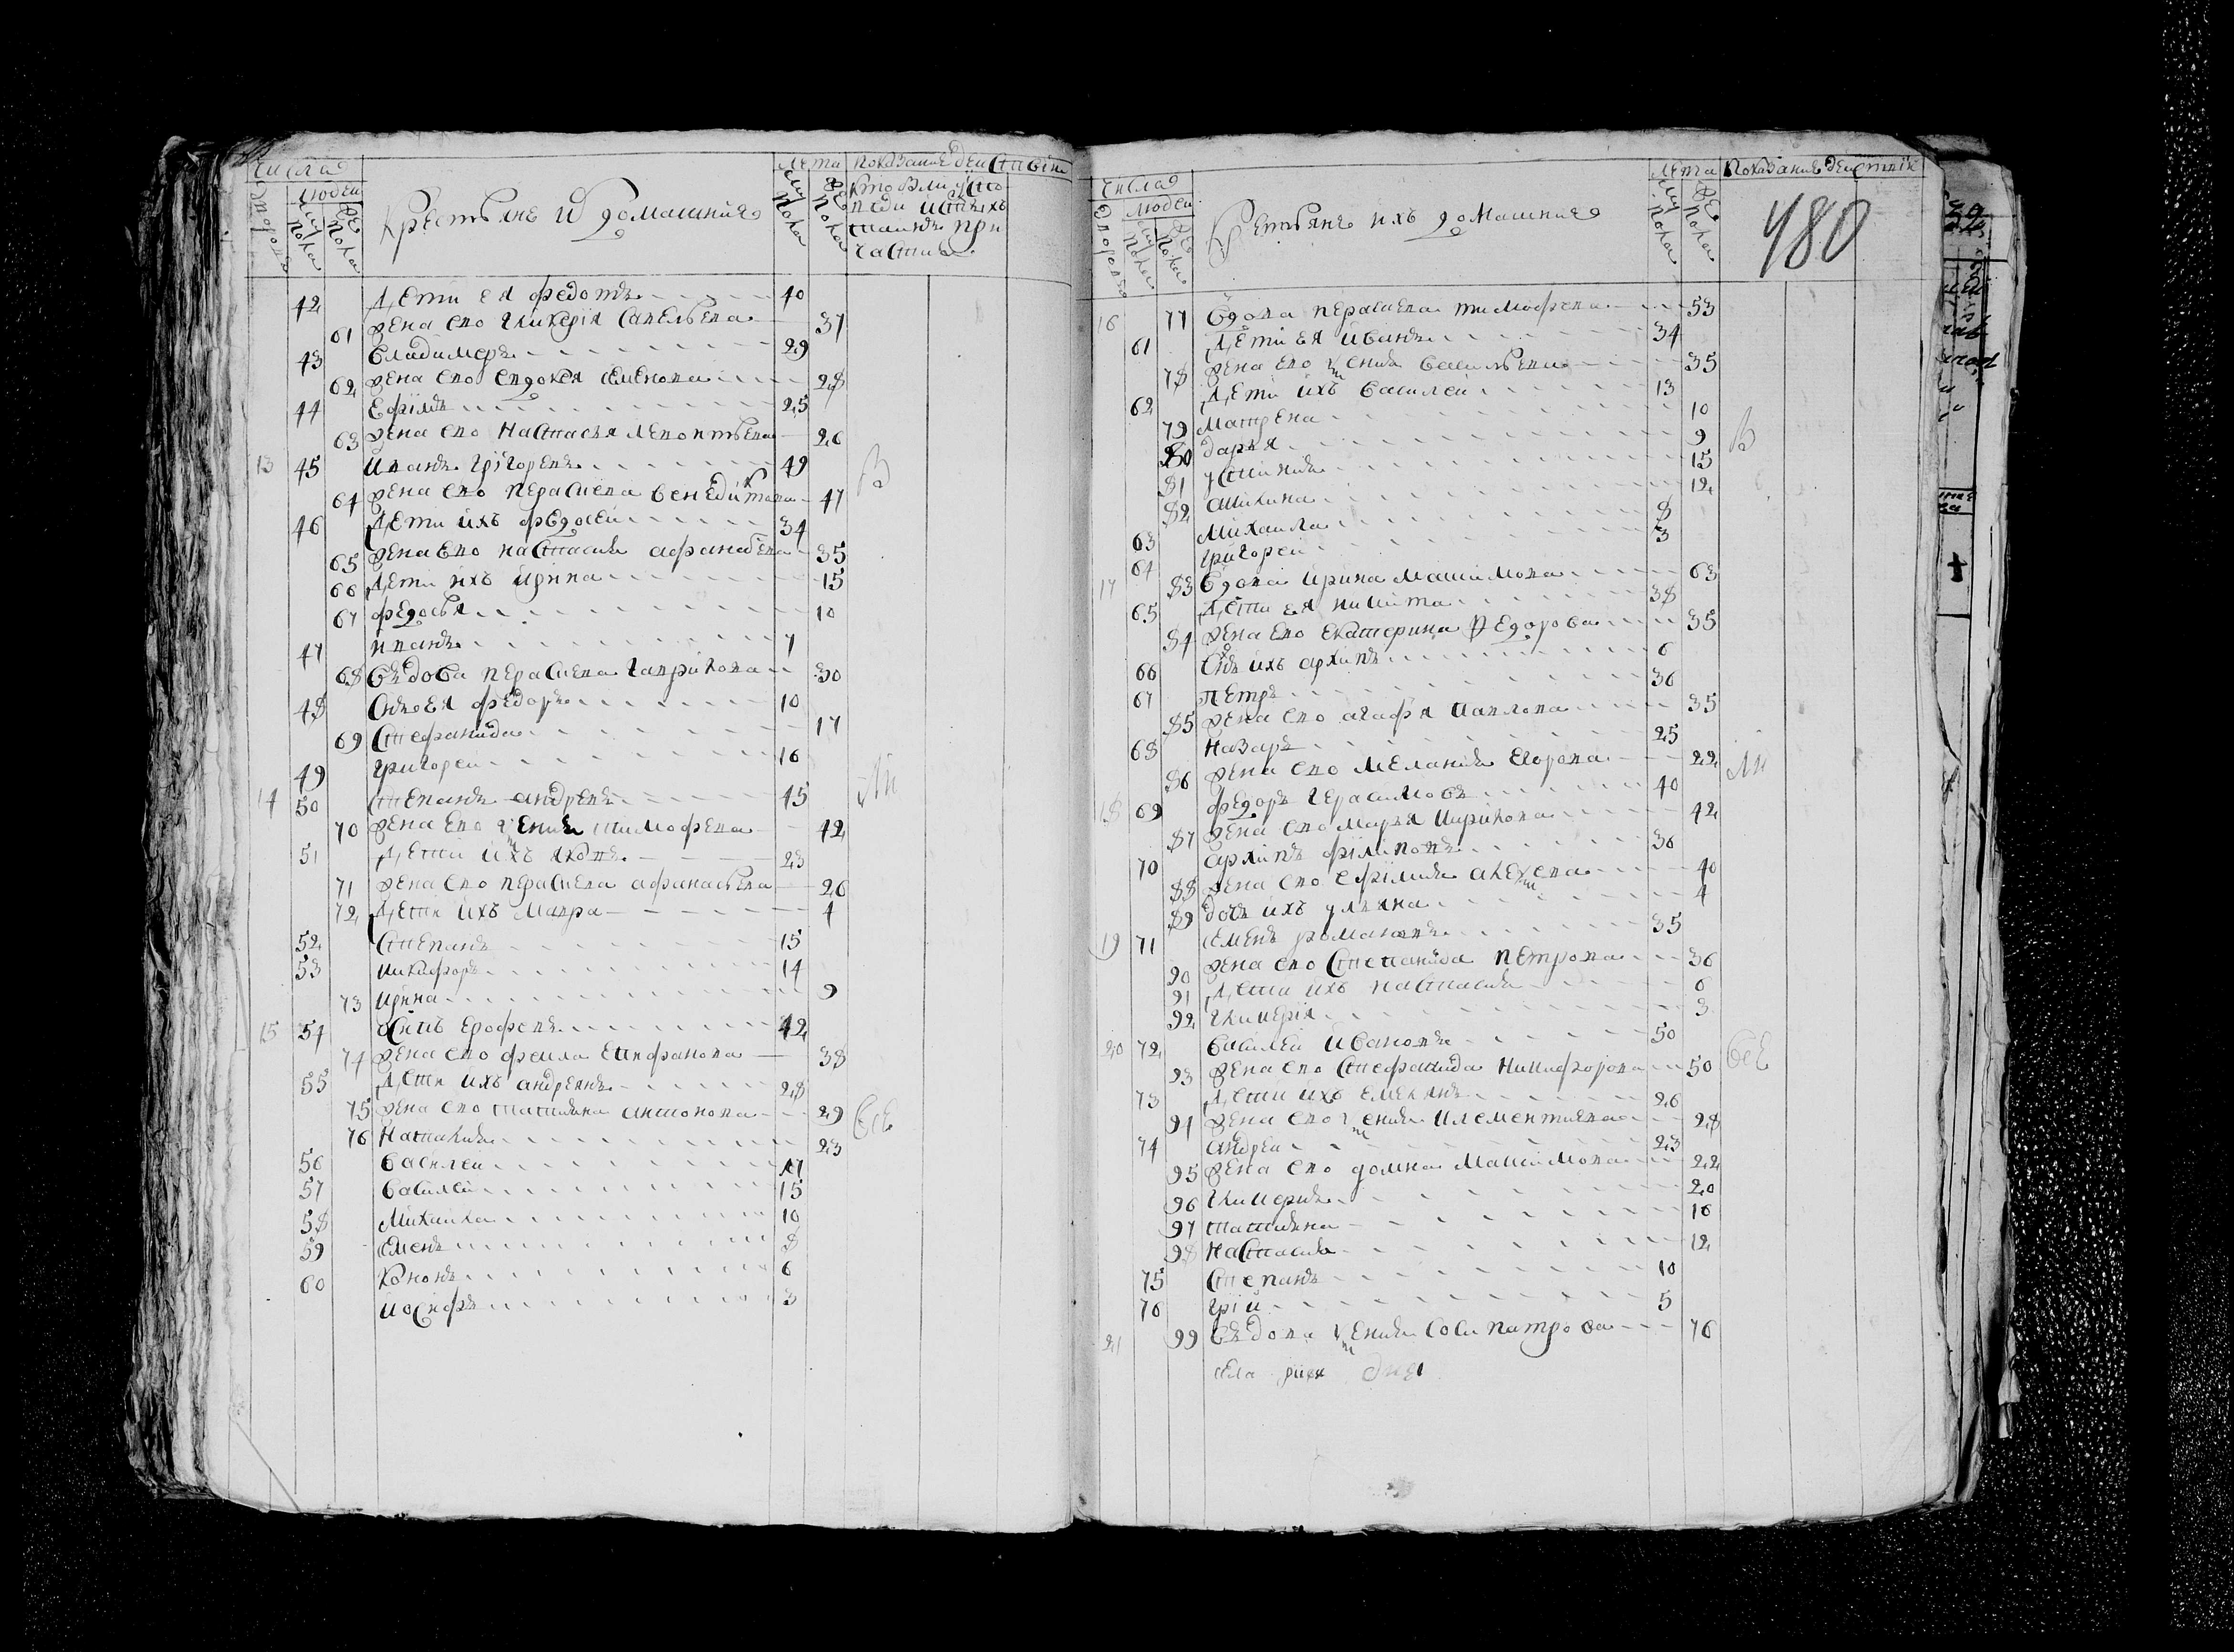 числа
Людей
Крестьяне и домашние
Лета
показание действия
42 Дети ея Федотъ 40
61 жена ево Гликерія Савельева 37
43 Владимеръ 29
62 жена ево Евдокея Семенова 28
44 Ефімъ 25
63 жена ево Настасья Леонтьева 26
13 45 Иванъ Григоревъ 49
64 жена ево Пераскева Венедиктова 47
46 Дети ихъ Федосеи 34
65 жена ево Настасия Афанасьева 35
66 Дети ихъ Ирина 15
67 Федосья 10
47 Иванъ 7
68 Въдова Пераскева Гаврилова 30
48 Снъ ея Федоръ 10
69 Стефанида 17
49 Григореи 16
14 50 Степанъ Андревъ 45
70 жена ево Ксения Тимофева 42
51 Дети ихъ Яковъ 23
71 жена ево Пераскева Афанасьева 26
72 Дети ихъ Мавра 4
52 Степанъ 15
53 Никифоръ 14
73 Ирина 9
15 54 Осипъ Ерофеевъ 42
74 жена ево Фекла Епифанова 38
55 Дети ихъ Андреянъ 28
75 жена ево Татияна Антонова 29
76 Наталия 23
56 Василеи 17
57 Василеи 15
58 Михаила 10
59 Семенъ 8
60 Кононъ 6
Иосифъ 3
В
Ли
Все
числа
Людей
Крестьяне ихъ домашние
Лета
Показание действия
480
16 77 Вдова Пераскева Тимофева 53
61 Дети ея Иванъ 34
78 жена ево Ксения Васильева 35
62 Дети ихъ Василеи 13
79 Матрена 10
80 Дарья 9
81 Устиния 15
82 Акилина 12
63 Михаила 8
64 Григореи 3
17 83 Вдова Ирина Максимова 63
65 Дети ея Никита 38
84 жена ево Екатерина Федорова 35
66 Снъ ихъ Архипъ 6
67 Петръ 36
85 жена ево Агафя Павлова 35
68 Назаръ 25
86 жена ево Мелания Егорова 22
18 69 Федоръ Герасимовъ 40
87 жена ево Марья Кирилова 42
70 Архипъ Філиповъ 36
88 жена ево Ефимия Алексева 40
89 дочь ихъ Ульяна 4
19 71 Семенъ Романовъ 35
90 жена ево Степанида Петрова 36
91 Дети ихъ Настасия 6
92 Гликерія 3
20 72 Василеи Ивановъ 50
93 жена ево Стефанида Никифорова 50
73 Дети ихъ Емелянъ 26
94 жена ево Ксения Клементиева 28
74 Андреи 23
95 жена ево Домна Максимова 22
96 Гликерия 20
97 Татияна 16
98 Настасия 12
75 Степанъ 10
76 Гріи 5
21 99 Въдова Ксения Сосипатрова 76
В
Ли
Все